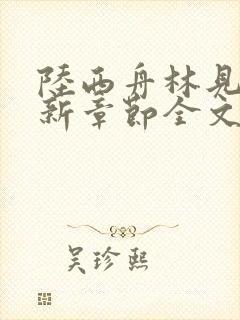 陸西舟林見
新章節全文
吴珍熙